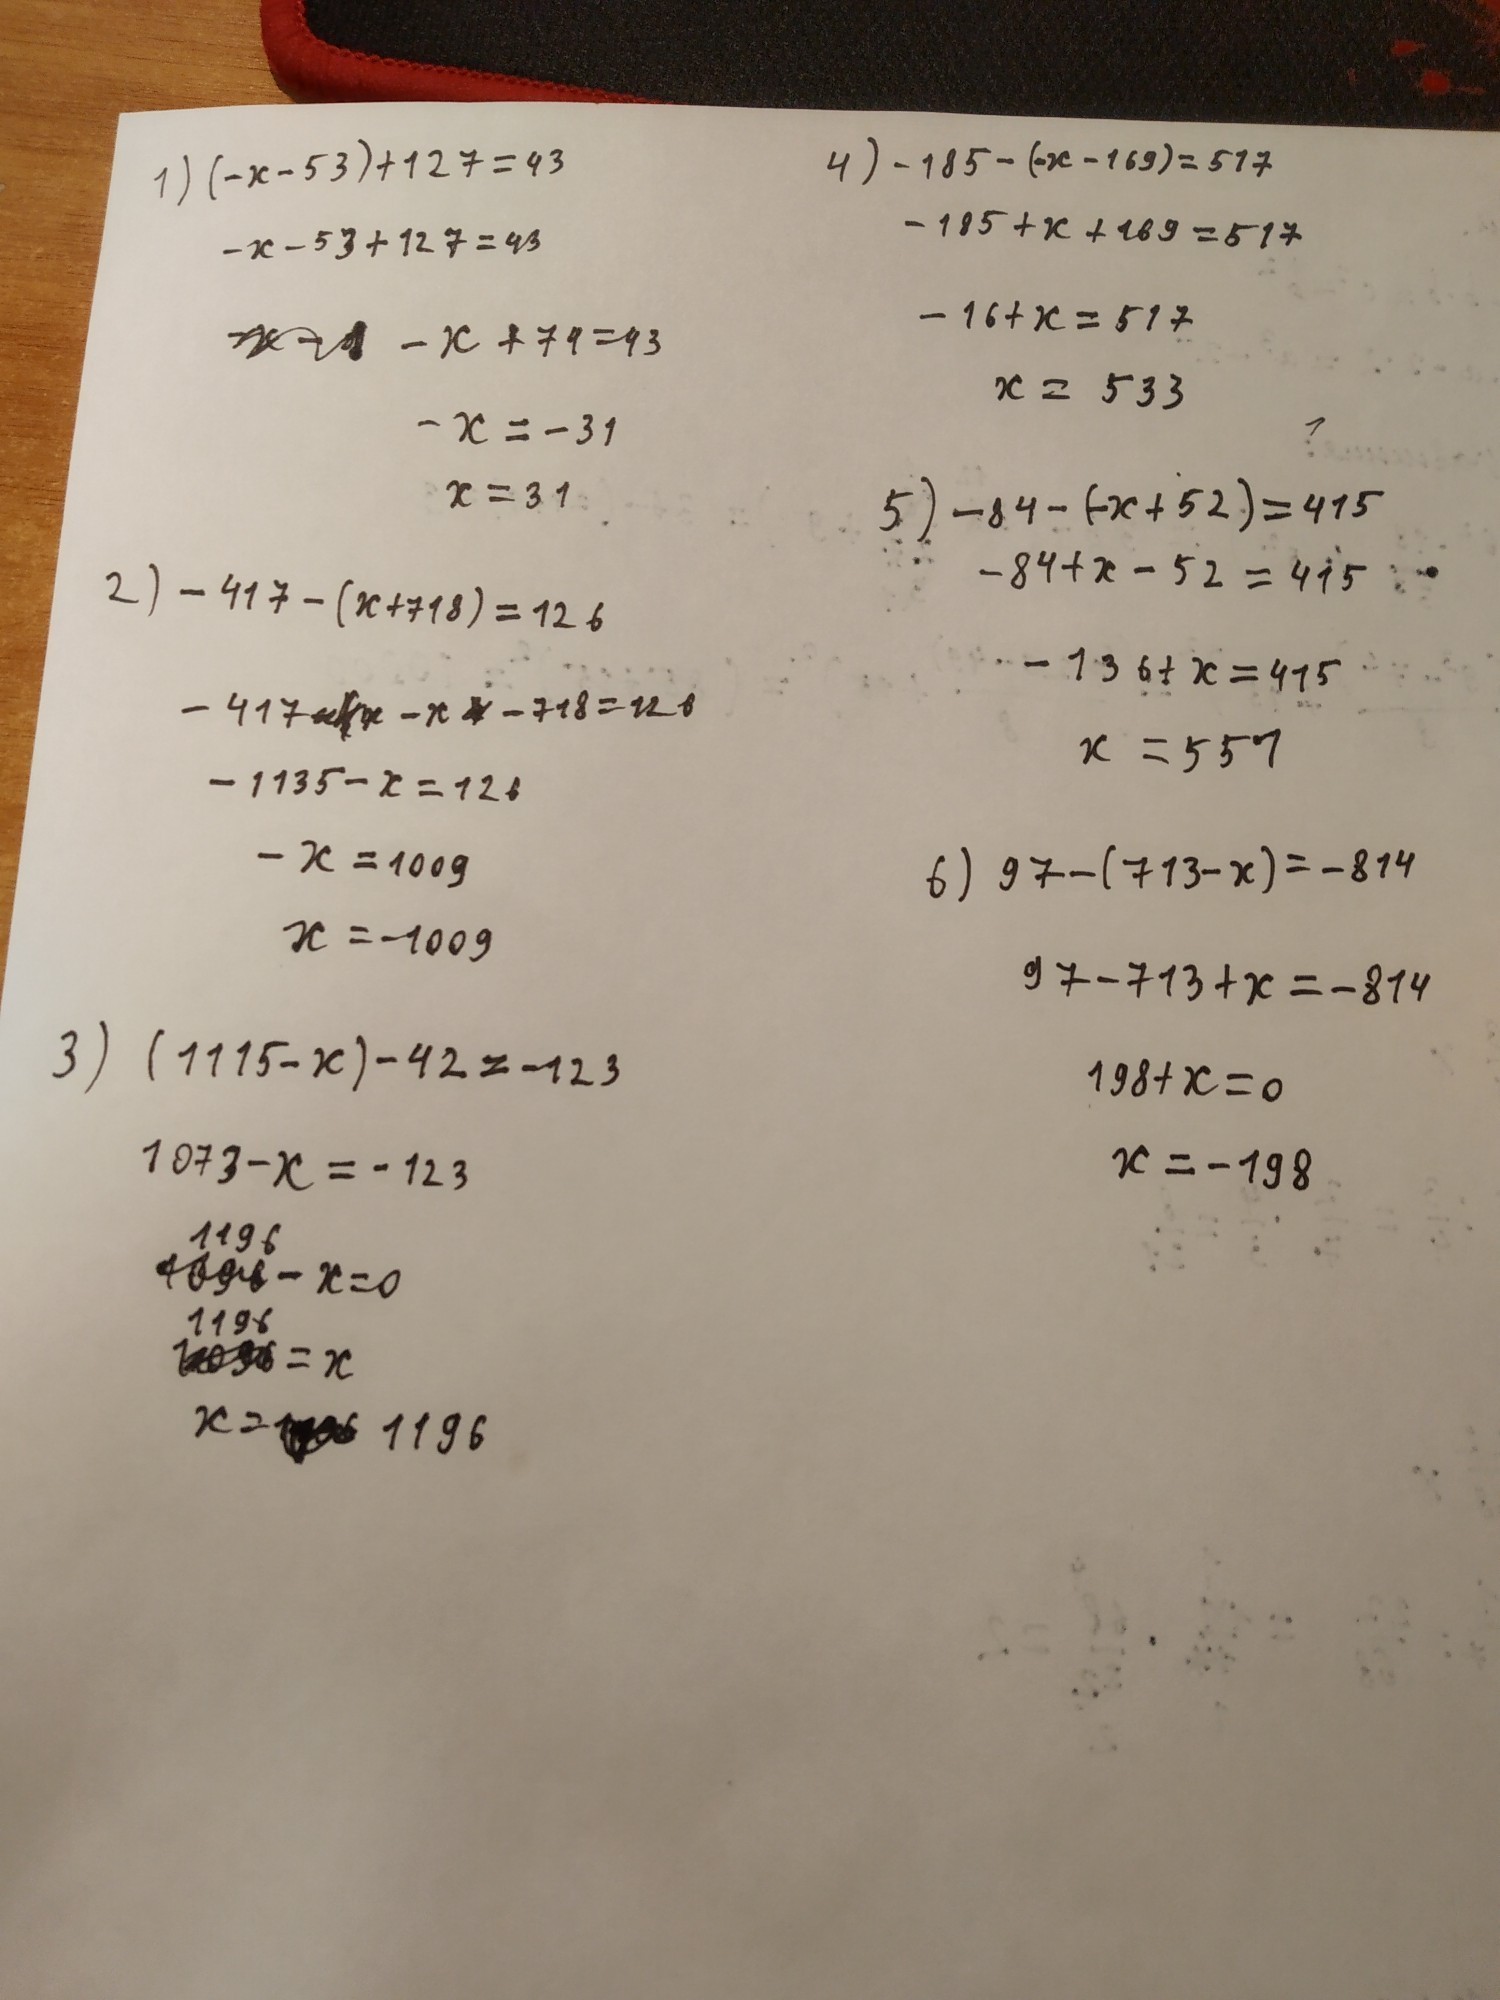 1) (-x-53)+127=43
-x-53+127=43
-x+74=43
-x=-31
x=31
2) -417-(x+718)=126
-417 -x -718=126
-1135-x=126
-x=1009
x=-1009
3) (1115-x)-42=-123
1073-x=-123
1196
-x=0
1196
=x
x= 1196
4) -185-(-x-169)=517
-185+x+169=517
-16+x=517
x=533
5) -84-(-x+52)=415
-84+x-52=415
-136+x=415
x=551
6) 97-(713-x)=-814
97-713+x=-814
198+x=0
x=-198